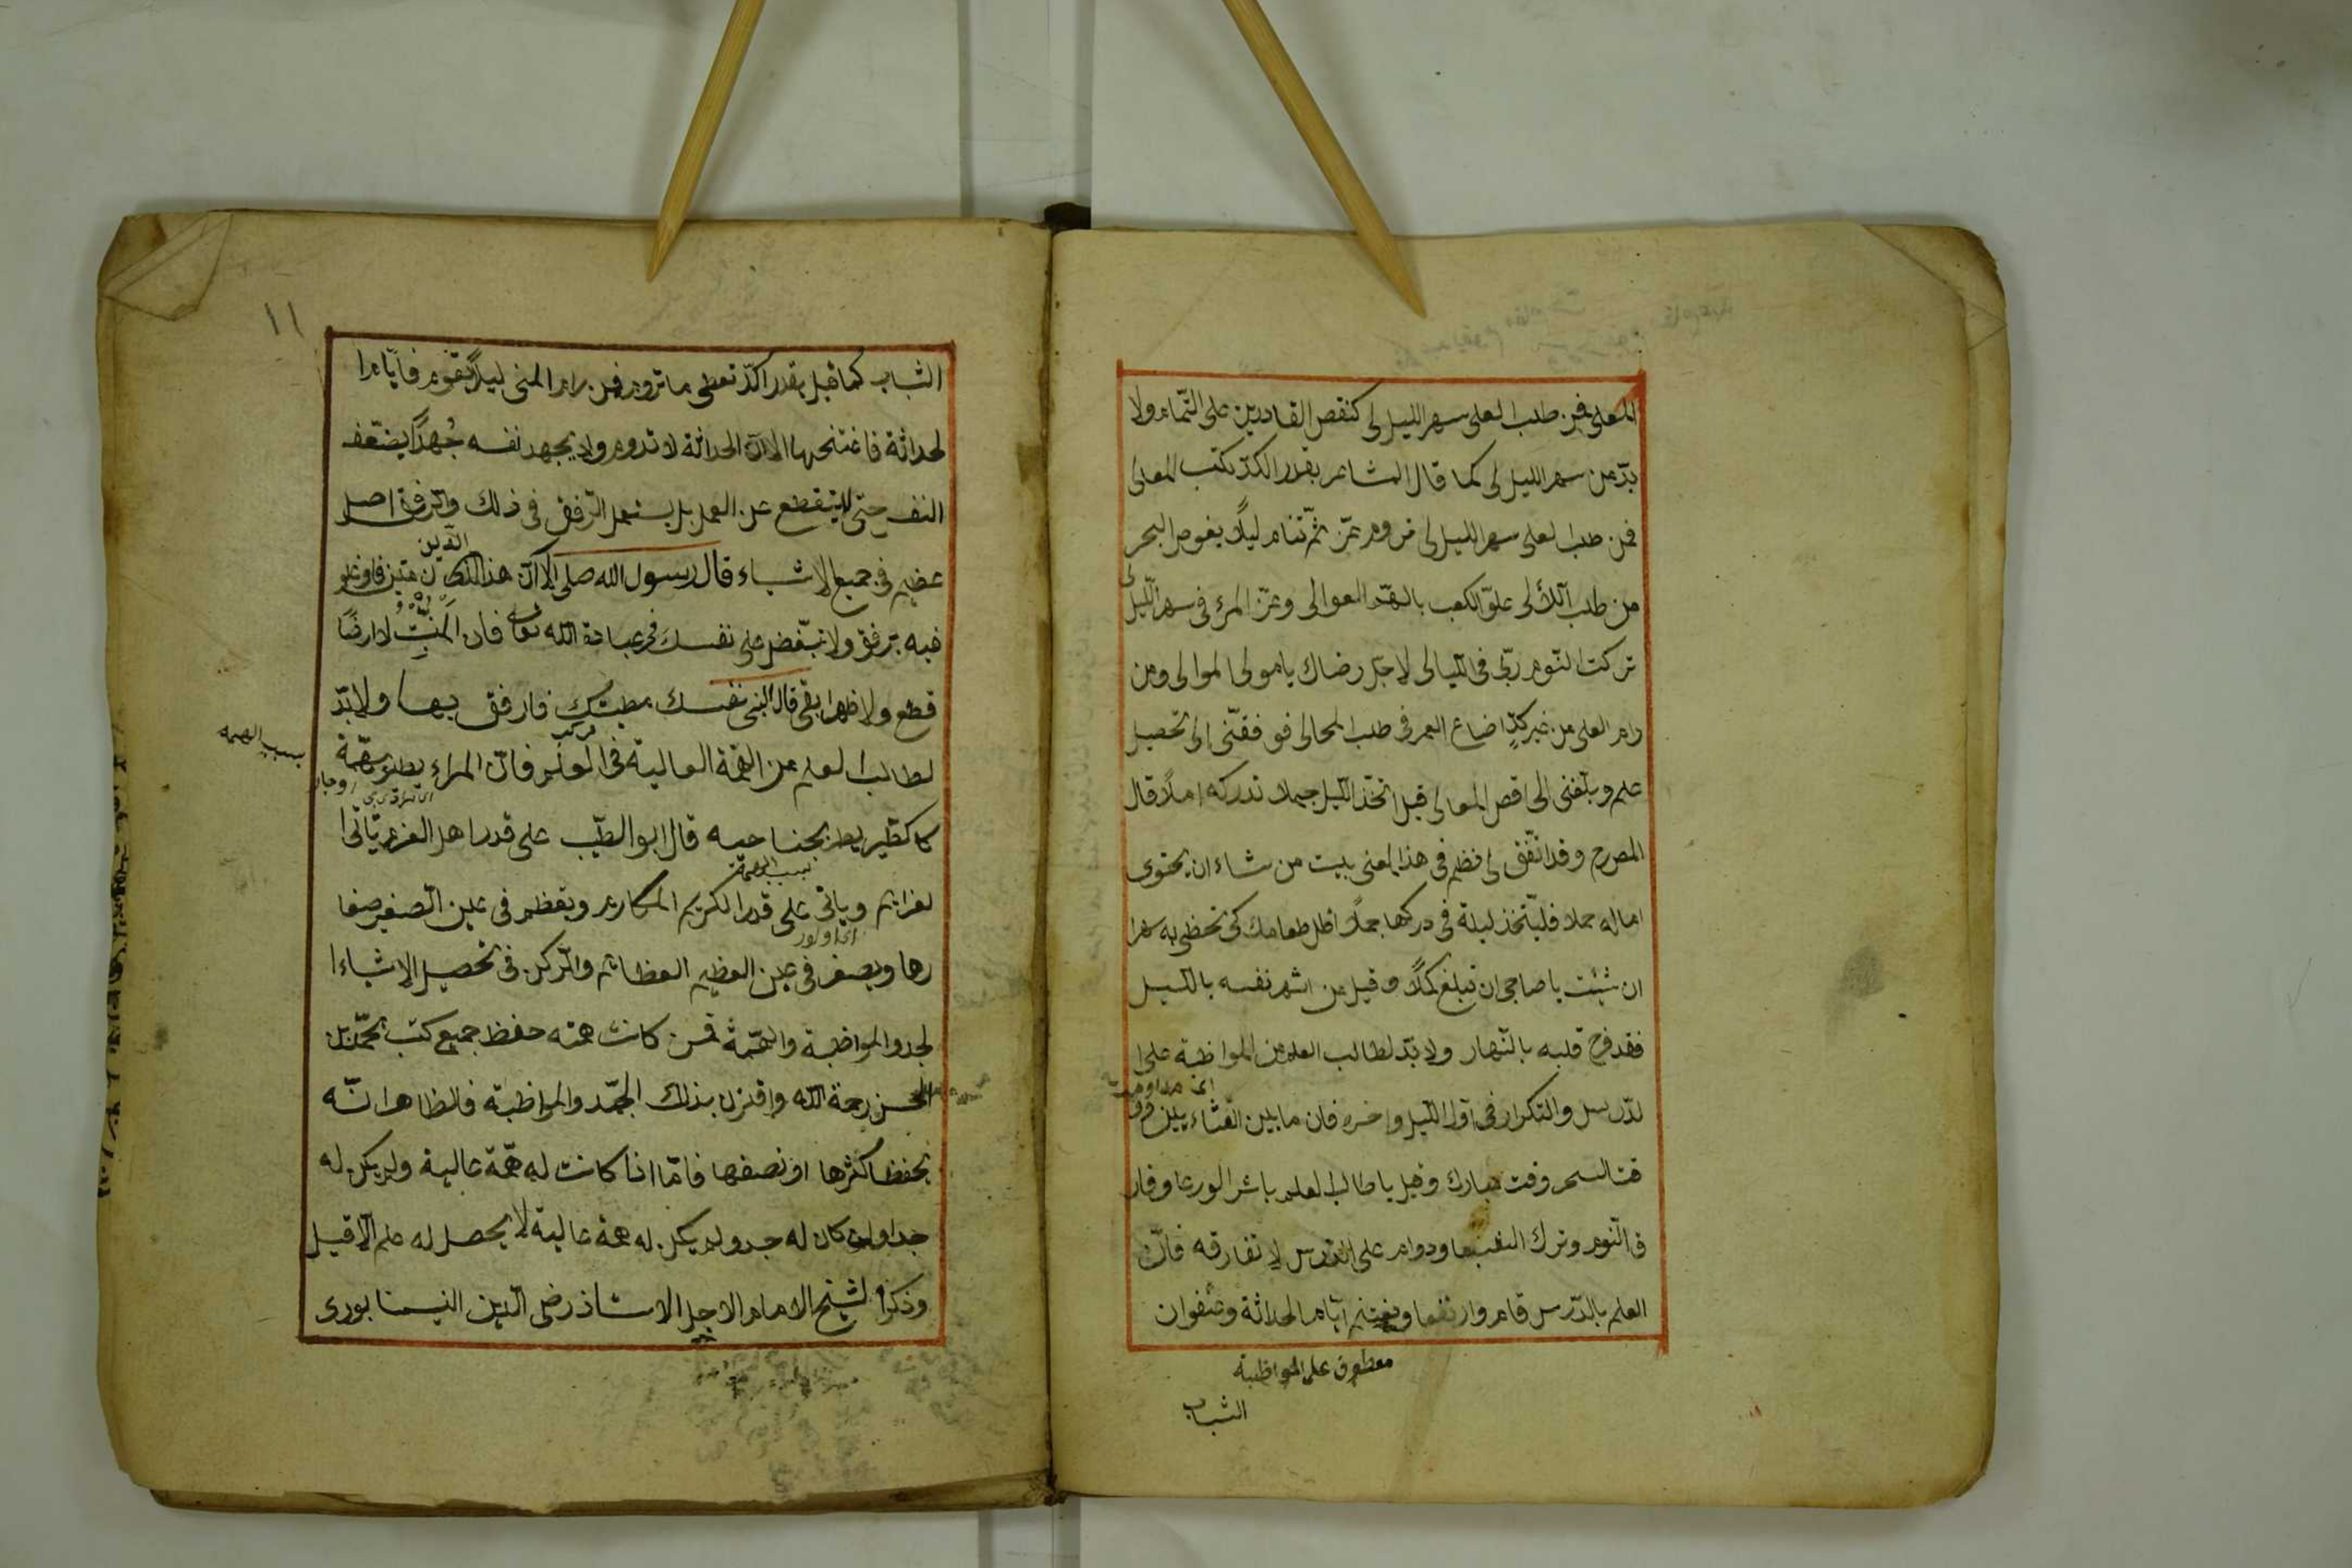 المعلى فمن طلب العلى سهر الليالى كنقص القادرين على التّمام ولا
بدّ من سهر الليالى كما قال الشاعر بقدر الكدّ تكتب المعالى
فمن طلب العلى سهر الليالى تروم عزّ ثمّ تنام ليلاً يغوص البحر
من طلب اللآلى علوّ الكعب بالهمّم العوالى وعزّ المرء فى سهر اللّيالى
تركت النّوم ربّى فى الليالى لاجل رضاك يا مولى الموالى ومن
رام العلى من غير كدٍّ اضاع العمر فى طلب المحالى فوفقنى الى تحصيل
علم وبلّغنى الى اقصى المعالى قيل اتخذ اللّيل جملا تدركه املاً قال
المصرح وقد اتّفق لى نظم فى هذا المعنى بيت من شاء ان يحتوى
اماله جملا فليتخذ ليلة فى دركها جملاً اقلل طعامك كى تحظى به سهرا
ان شئت يا صاحبى ان تبلغ كملاً وقيل من اسهر نفسه بالليل
فقد فرح قلبه بالنّهار ولا بدّ لطالب العلم من المواظبة على ا
اى مداومت
لدّرس والتكرار فى اوّل اللّيل واخره فان ما بين العشاء يين وو
قت السحر وقت مبارك وقيل يا طالب العلم باشر الورعا وفار
ق النّوم وترك الشبعا ودوام على الدرس لا تفارقه فانّ
العلم بالدّرس قام وارتفعا ويغتنم ايّام الحداثة وعنفوان
معطوف على المواظبة
الشباب
١١
الشباب كما قيل بقدر الكدّ تعطى ما تروم فمن رام المنى ليلاً يقوم فايّام ا
لحداثة فاغتنمها الا انّ الحداثة لا تدوم ولا يجهد نفسه جُهداً يضعّف
النفس حتى ينقطع عن العمل بل يستعمل الرّفق فى ذلك والرّفق اصل
الدّين
عظيم فى جميع الاشياء قال رسول الله صلى الا انّ هذا الدين متين فاوغلو
فيه برفق ولا تبغّض على نفسك فى عبادة الله تعالى فان المنبتّ لا ارضًا
قطع ولا ظهرا ابقى قال النبى نفسك مطيتك فارفق بها ولا بدّ
مركب
لطالب العلم من الهمّة العالية فى العلم فانّ المراء يطير بهمّة
بسبب الهمه
كا لطّير يطير بجناحيه قال ابو الطيّب على قدر اهل العزم تأتى ا
بسبب الهمة
لعزايم ويأتى على قدر الكريم المكارم وتعظم فى عين الصّغير صغا
رها ويصغر فى عين العظيم العظائم والرّكن فى تحصيل الاشياء ا
لجد والمواظبة والهمّة فمن كانت همته حفظ جميع كتب محمّد بن
الحسن رحمة اللّه واقترن بذلك الجدّ والمواظبة فالظاهر انّه
يحفظ اكثرها او نصفها فامّا اذا كانت له همّة عالية ولم يكن له
جد او ان كان له جد ولم يكن له همة عالية لا يحصل له علم الّا قليل
وذكر الشيخ الامام الاجل الاستاذ رضى الدّين النيسابورى